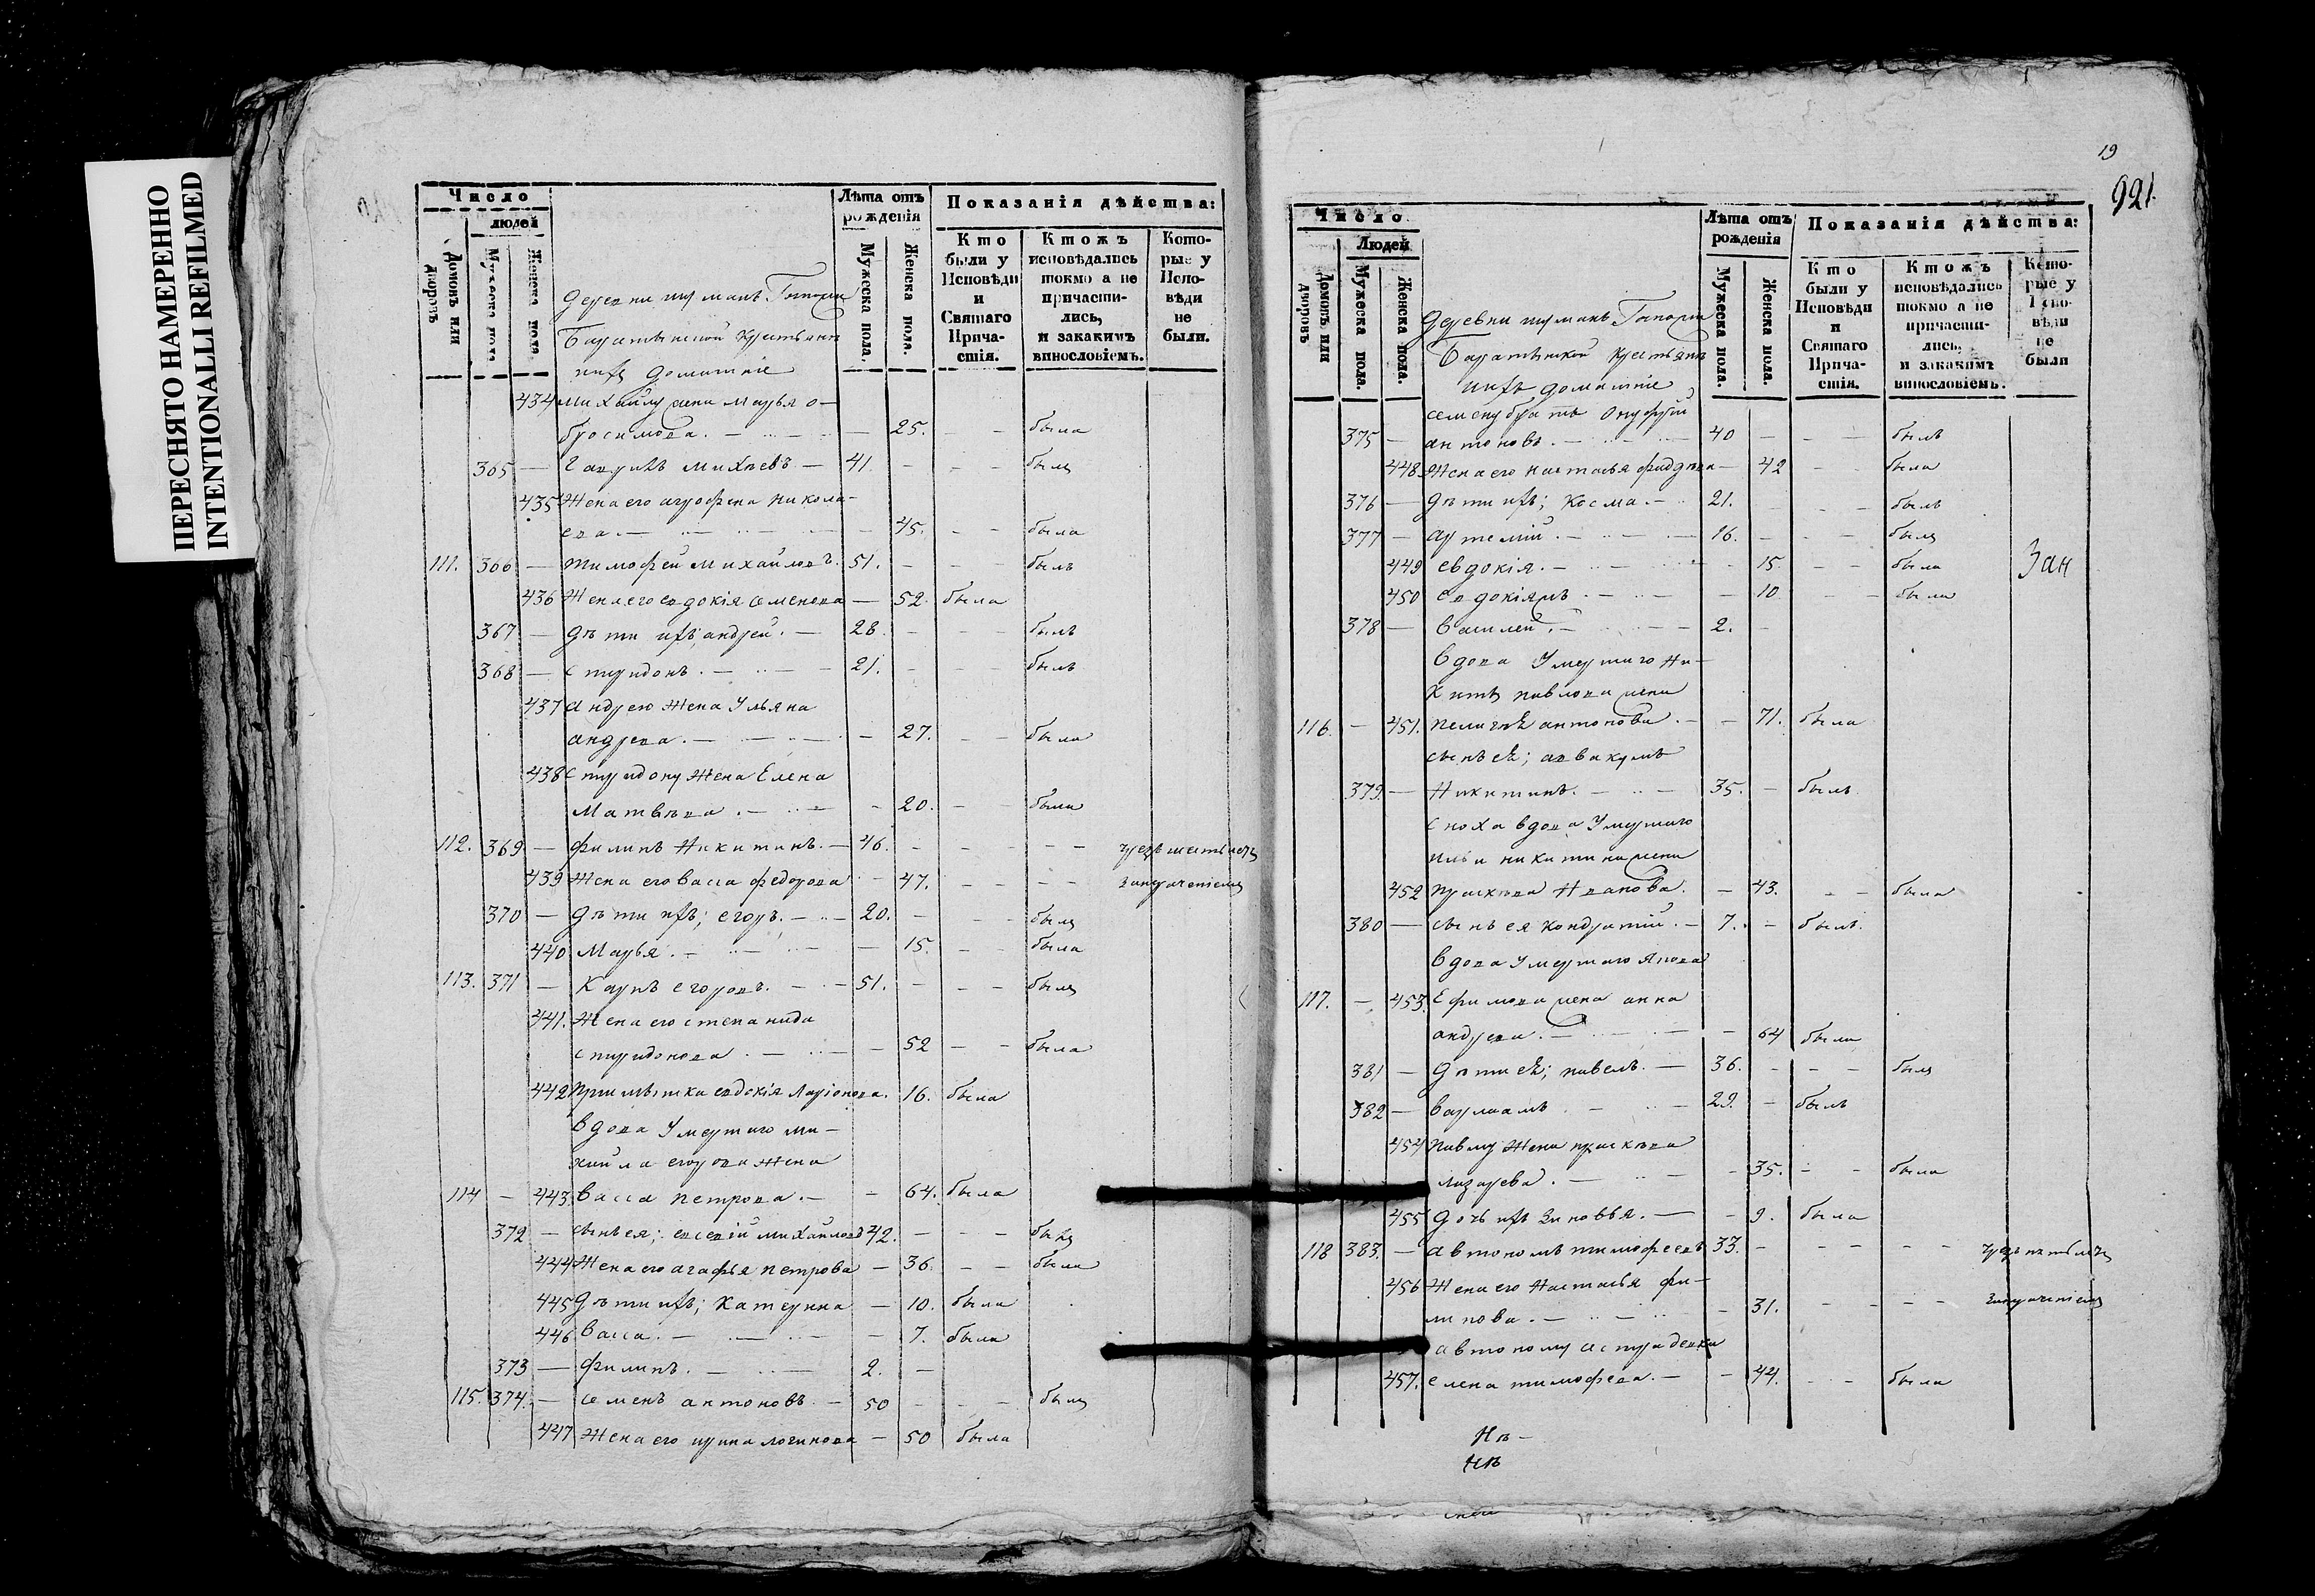 ПЕРЕСНЯТО НАМЕРЕННО
INTENTIONALLI REFILMED
Число
людей
Домовъ или дворовъ
Мужеска пола
Женска пола
Лѣта отъ рожденія
Мужеска пола.
Женска пола.
Показанія дѣйства:
Кто были у Исповѣди и Святаго Прича-стія.
Ктожъ исповѣдались токмо а не причасти-лись, и закакимъ винословіемъ.
Кото-рые у Испо-вѣди не были.
деревни
домашніе
434 Михайлу жена Марья о-
бросимова. — 25. была
365 — Гаврилъ Михѣевъ — 41. былъ
435 Жена его агрофена Никола-
ева — 45. была
111. 366 — Тимофей Михайловъ. 51. былъ
436 Жена его евдокія семенова — 52. была
367 — дѣти ихъ; андрей. — 28. былъ
368 — спиридонъ. — 21. былъ
437 андрею Жена Ульяна
андреева. — 27. была
438 спиридону Жена Елена
Матвѣева. — 20. была
112. 369 — филипъ Никитинъ. — 46.
439 Жена его васса федорова — 47.
370 — дѣти ихъ; егоръ. — 20. былъ
440 Марья. — 15. была
113. 371 — Карпъ егоровъ. — 51. былъ
441. Жена его степанида
спиридонова. — 52 была
442 евдокія Ларіонова. 16. была
вдова Умершаго ми-
хайла егорова Жена
114 — 443 васса петрова. — 64. была
372 — сынъ ея; евсевій михайловъ 42. былъ
444 Жена его агафья петрова — 36. была
445 дѣти ихъ; Катерина — 10. была
446 васса. — 7. была
373 — филипъ. — 2. —
115. 374. — семенъ антоновъ. — 50 былъ
447 Жена его ирина логинова — 50 была
19
921.
Число
Людей
Домовъ или дворовъ
Мужеска пола.
Женска пола.
Лѣта отъ рожденія
Мужеска пола.
Женска пола.
Показанія дѣйства:
Кто были у Исповѣди и Святаго Прича-стія.
Ктожъ исповѣдались токмо а не причасти-лись, и закакимъ винословіемъ.
Кото-рые у Испо-вѣди не были
деревни
домашніе
семену братъ Онуфрій
375 — антоновъ. — 40 былъ
448 Жена его настасья — 42 была
376 — дѣти ихъ; Косма. — 21. былъ
377 — артемій. — 16. былъ
449 евдокія. — 15. была
Зан
450 — 10 была
378 — василей. — 2. —
вдова Умершаго Ни-
киты павлова жена
116. — 451. пелагѣя антонова. — 71. была
сынъ ея; аввакумъ
379. — Никитинъ. — 35. былъ
сноха вдова Умершаго
ильи никитина жена
452 праскева Иванова. — 43. была
380 — сынъ ея кондратій. — 7. былъ.
вдова умершаго Якова
117. — 453. Ефимова жена анна
андреева. — 64 была
381 — дѣти ея; павелъ. — 36. былъ
382 — варлаамъ — 29. былъ
454 павлу Жена праскева
лазарева. — 35. была
455 дочь ихъ Зиновья. — 9. была
118 383. — автономъ тимофеевъ 33.
456 Жена его Настасья фи-
липова. — 31.
автоному сестра девка
457. елена тимофеева. — 44. была